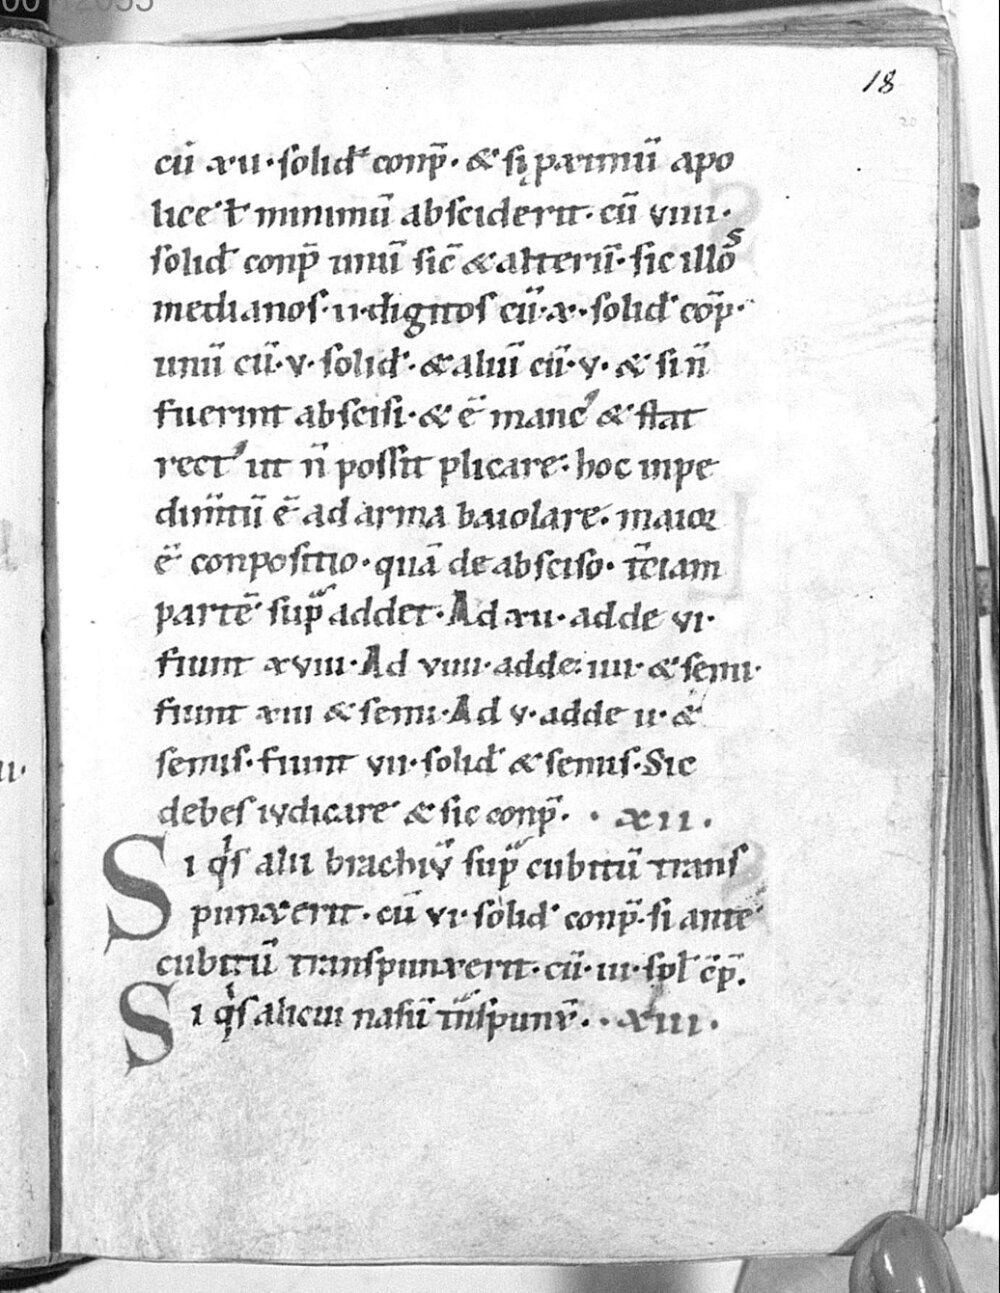 18
cū xii · solid̄ conp̄ · & si p̱ximū apo
lice ł minimū absciderit · cū viiii ·
solid̄ conp̄ unū sic̄ & alterū · sic illos
medianos · ii · digitos cū · x · solid̄ cōp̄ ·
unū cū · v · solid̄ · & aliū cū · v · & si n̄
fuerint abscisi · & ē manc' & stat
rect' ut n̄ possit plicare · hoc inpe
dim̄tū ē ad arma baiolare · maior
ē conpositio · quā de absciso · t̄ciam
partē sup̄ addet · Ad xii · adde vi ·
fiunt xviii · Ad viiii · adde · iiii · & semi ·
fiunt xiii & semi · Ad v · adde ii · &
semis · fiunt vii · solid̄ & semis · Sic
debes iudicare & sic conp̄ · · xii ·
Si q̇s alii brachiū sup̄ cubitū trans
punxerit · cū vi · solid̄ conp̄ · si ante
cubitū transpunxerit · cū · iii · sol̄ c̄p̄ ·
Si q̇s alicui nasū tn̄spunx̄ · · xiii ·